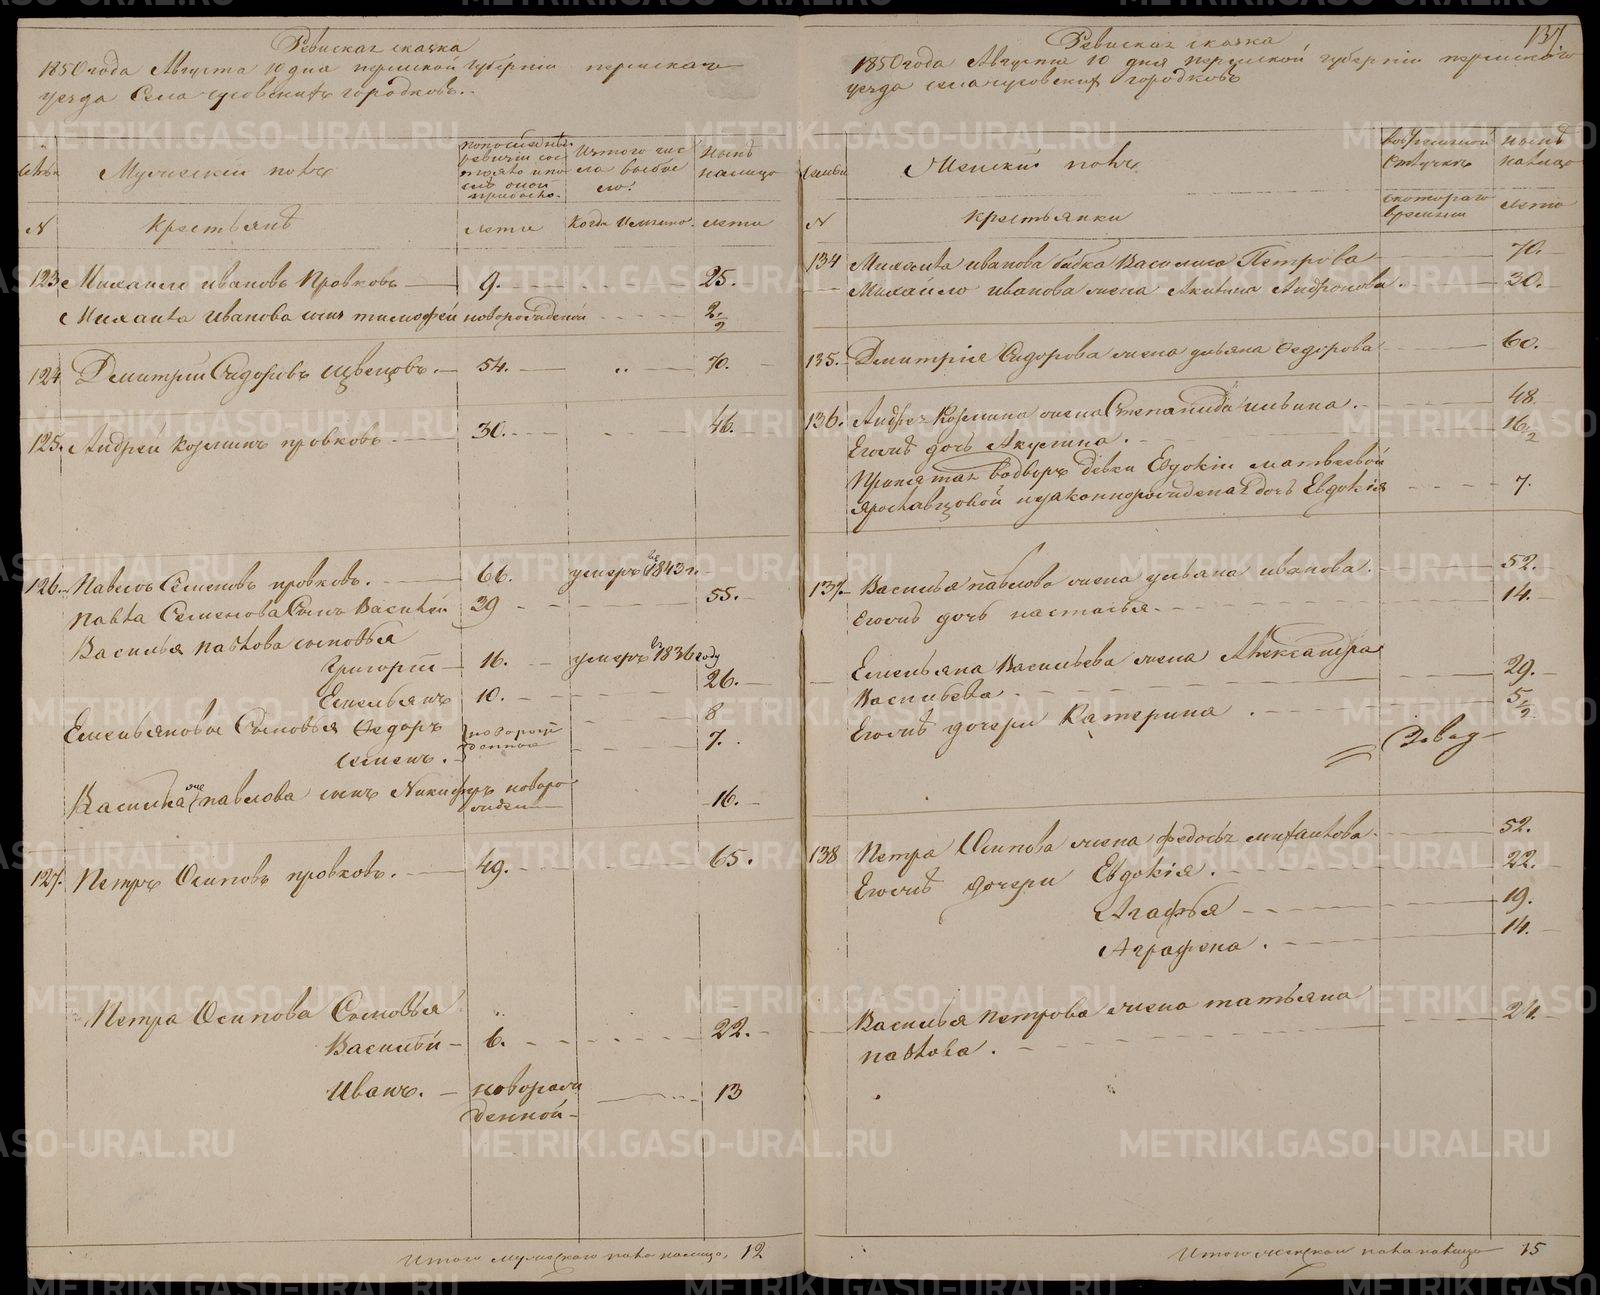 Ревиская сказка
1850 года Августа 10 дня пермской губерніи пермскаго
уезда Села чусовскихъ городковъ.
Мужескій полъ
по последней ревизіи состояло и после оной прибыло.
Изъ того числа выбыло.
ныне налицо
№
Крестьянѣ
лета
Когда именно.
лета
123 Михайло Ивановъ Провковъ 9. 25.
Михайла Иванова сынъ тимофей новорожденой 2 1/2
124 Дмитрий Сидоровъ Швецовъ. 54. 70.
125. Андрей Козминъ провковъ 30. 46.
126. Павелъ Семеновъ провковъ. 66. умеръ въ 1843 г.
Павла Семенова Сынъ Василей 39 55.
Василья павлова сыновья
Григорій 16. умеръ въ 1836 году
Емельянъ 10. 26.
Емельяновы Сыновья Федоръ новорожденные 8
семенъ. 7.
Василья же павлова сынъ Никифоръ новорожден 16.
127. Петръ Осиповъ провковъ. 49. 65.
Петра Осипова Сыновья
Василій 6. 22.
Иванъ. новорожденной 13
Итого мужескаго пола налицо. 12
137
Ревиская сказка
1850 года Августа 10 дня пермской губерніи пермскаго
уезда села чусовскихъ городковъ
Женскій полъ
во временной отлучкѣ
ныне налицо
№
Крестьянки
с котораго времени
лета
134 Михаила иванова бабка Василиса Петрова 70.
Михайло иванова жена Акилина Андронова. 30.
135. Дмитрія Сидорова жена ульяна Федорова 60.
136. Андрея Козмина жена Степанида ильина. 48.
Егоже дочь Акулина. 16 1/2
Принятая водворъ девки Евдокіи матвеевой
Ярославцовой незаконнорожденная дочь Евдокія 7.
137 Василья павлова жена ульяна иванова. 52.
Егоже дочь настасья. 14.
Емельяна Васильева жена Александра
Васильева 29.
Егоже дочери Катерина. 5 1/2
138 Петра Осипова жена федосья михаилова. 52.
Егоже дочери Евдокія. 22.
Агафья 19.
Аграфена. 14.
Василья петрова жена татьяна
павлова. 24.
Итого женскаго пола налицо 15
METRIKI.GASO-URAL.RU